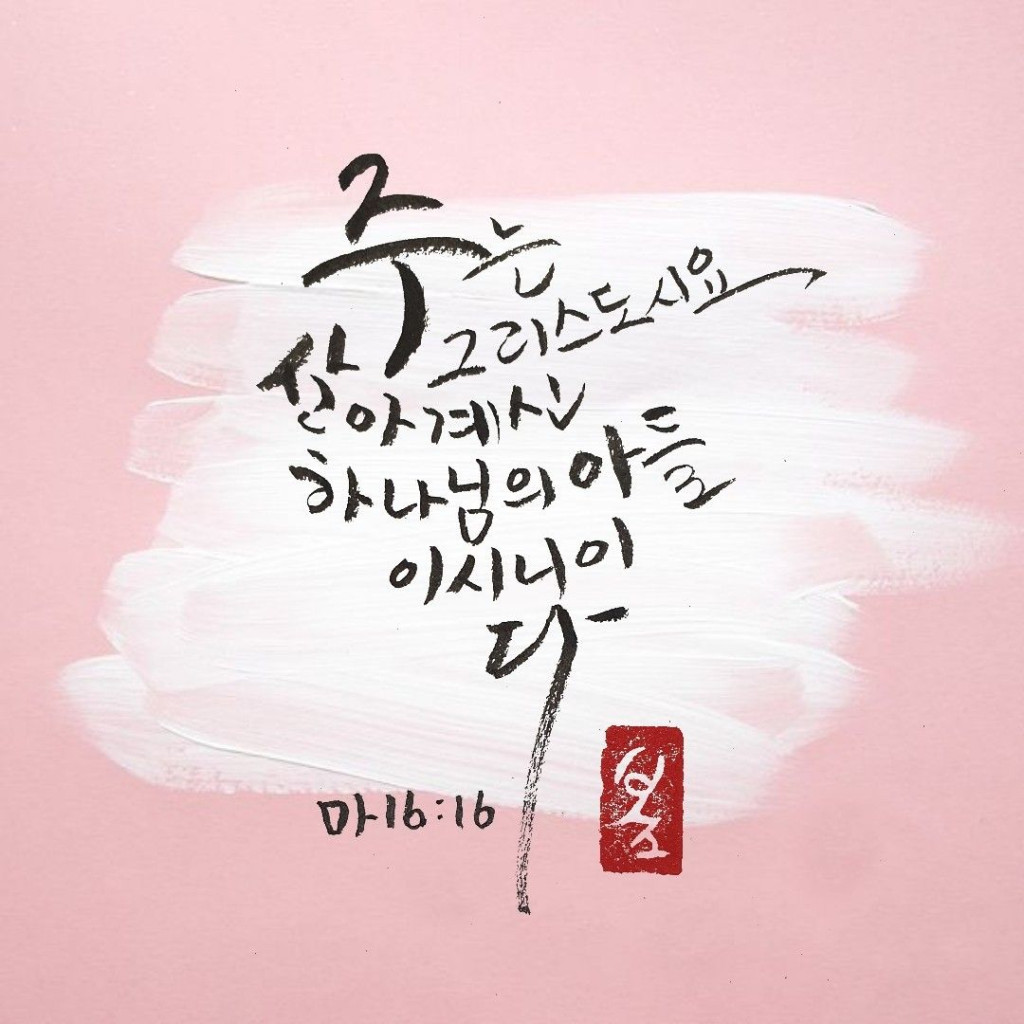 주는
그리스도시요
살아계신
하나님의 아들
이시니이
다
마16:16